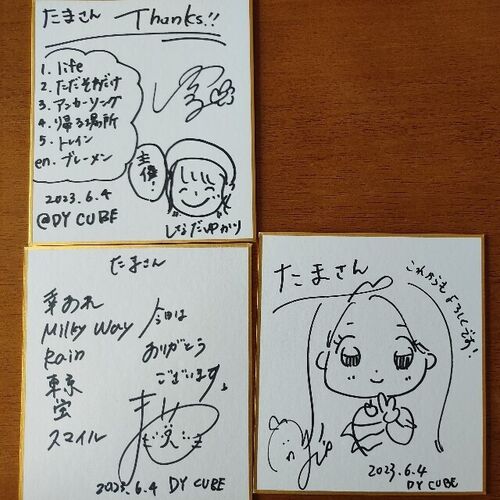 たまさん Thanks!!
1. life
2. ただそれだけ
3. アンカーソング
4. 帰る場所
5. トレイン
en. ブレーメン
主催!
2023.6.4
@DY CUBE
しもだゆかり
たまさん
幸あれ
Milky Way
Rain
東京
宝
スマイル
今日は
ありがとう
ございます。
2023.6.4 DY CUBE
たまさん
これからもよろしくです!
2023.6.4
DY CUBE